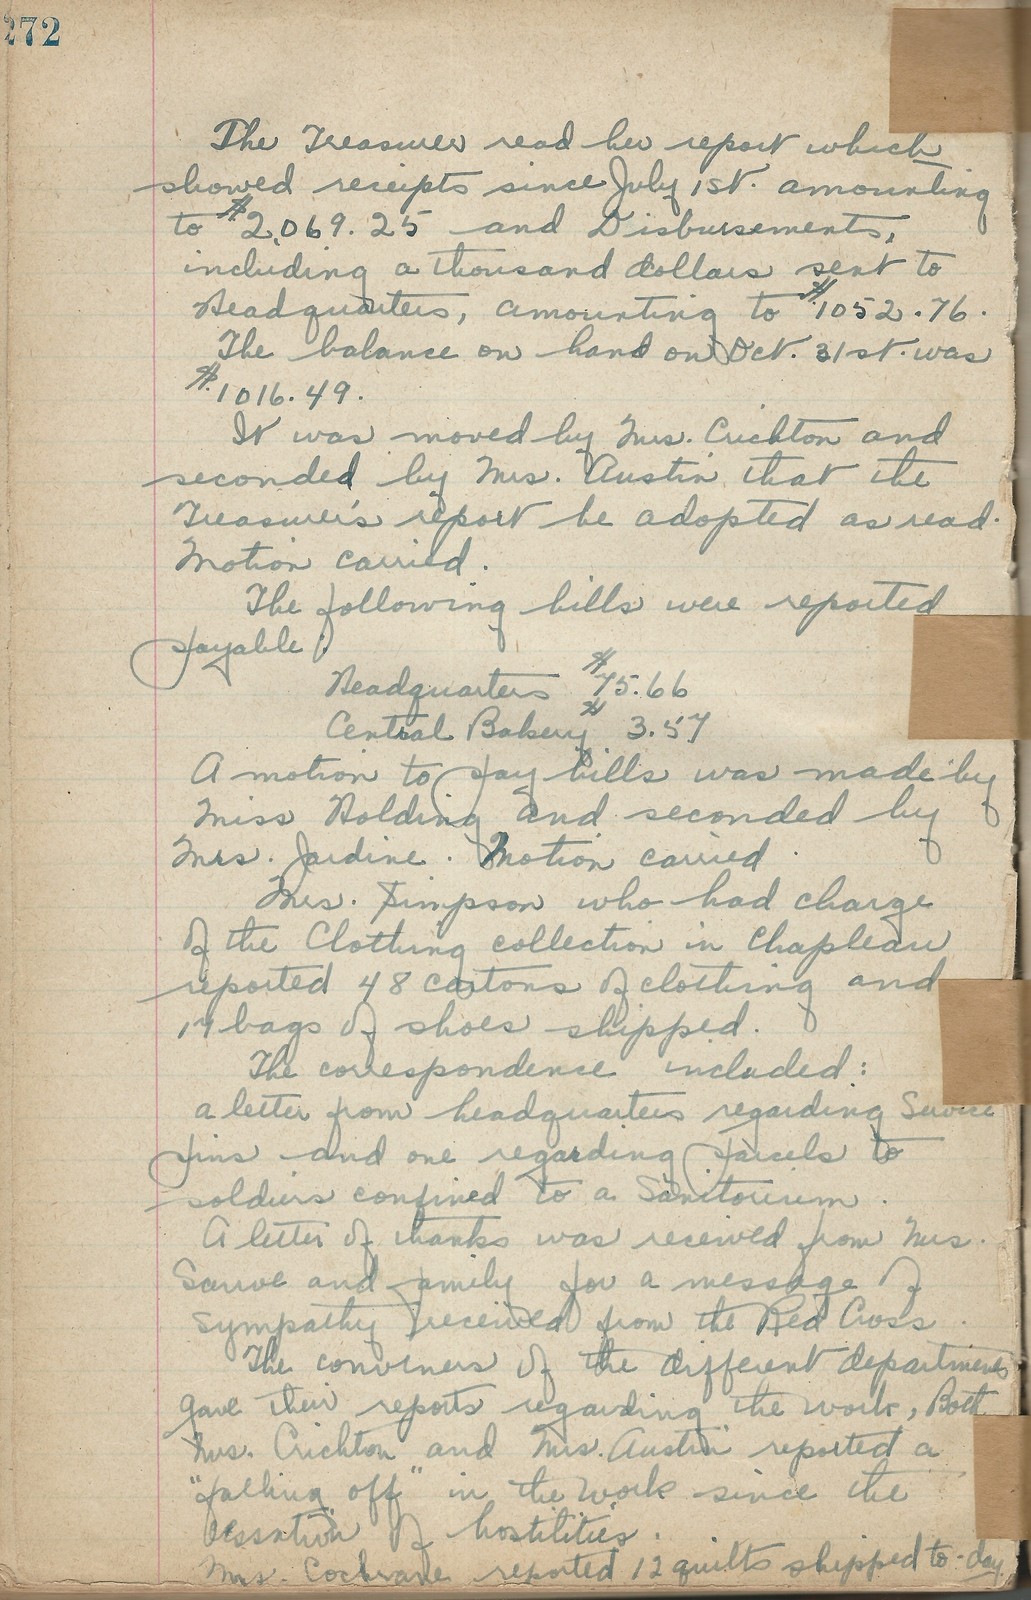 272
The Treasurer read her report which
showed receipts since July 1st. amounting
to $2,069.25 and Disbursements,
including a thousand dollars sent to
Headquarters, amounting to $1052.76.
The balance on hand on Oct. 31st. was
$1016.49.
It was moved by Mrs. Crichton and
seconded by Mrs. Austin that the
Treasurer's report be adopted as read.
Motion carried.
The following bills were reported
payable:
Headquarters $75.66
Central Bakery $3.57
A motion to pay bills was made by
Miss Holding and seconded by
Mrs. Jardine. Motion carried.
Mrs. Simpson who had charge
of the Clothing collection in Chapleau
reported 48 cartons of clothing and
bags of shoes shipped.
The correspondence included:
a letter from headquarters regarding Service
pins and one regarding parcels to
soldiers confined to a Sanitorium.
A letter of thanks was received from Mrs.
and family for a message of
sympathy received from the Red Cross.
The conveners of the different departments
gave their reports regarding the work, Both
Mrs. Crichton and Mrs. Austin reported a
"falling off" in the work since the
of hostilities.
Mrs. Cochrane reported 12 quilts shipped to-day.